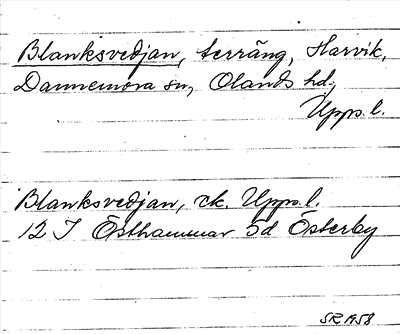 Blanksvedjan, terräng, Harvik,
Dannemora sn, Olands hd,
Upps. l.
Blanksvedjan, rk. Upps. l.
12 I Östhammar 5d Österby
SR 1958